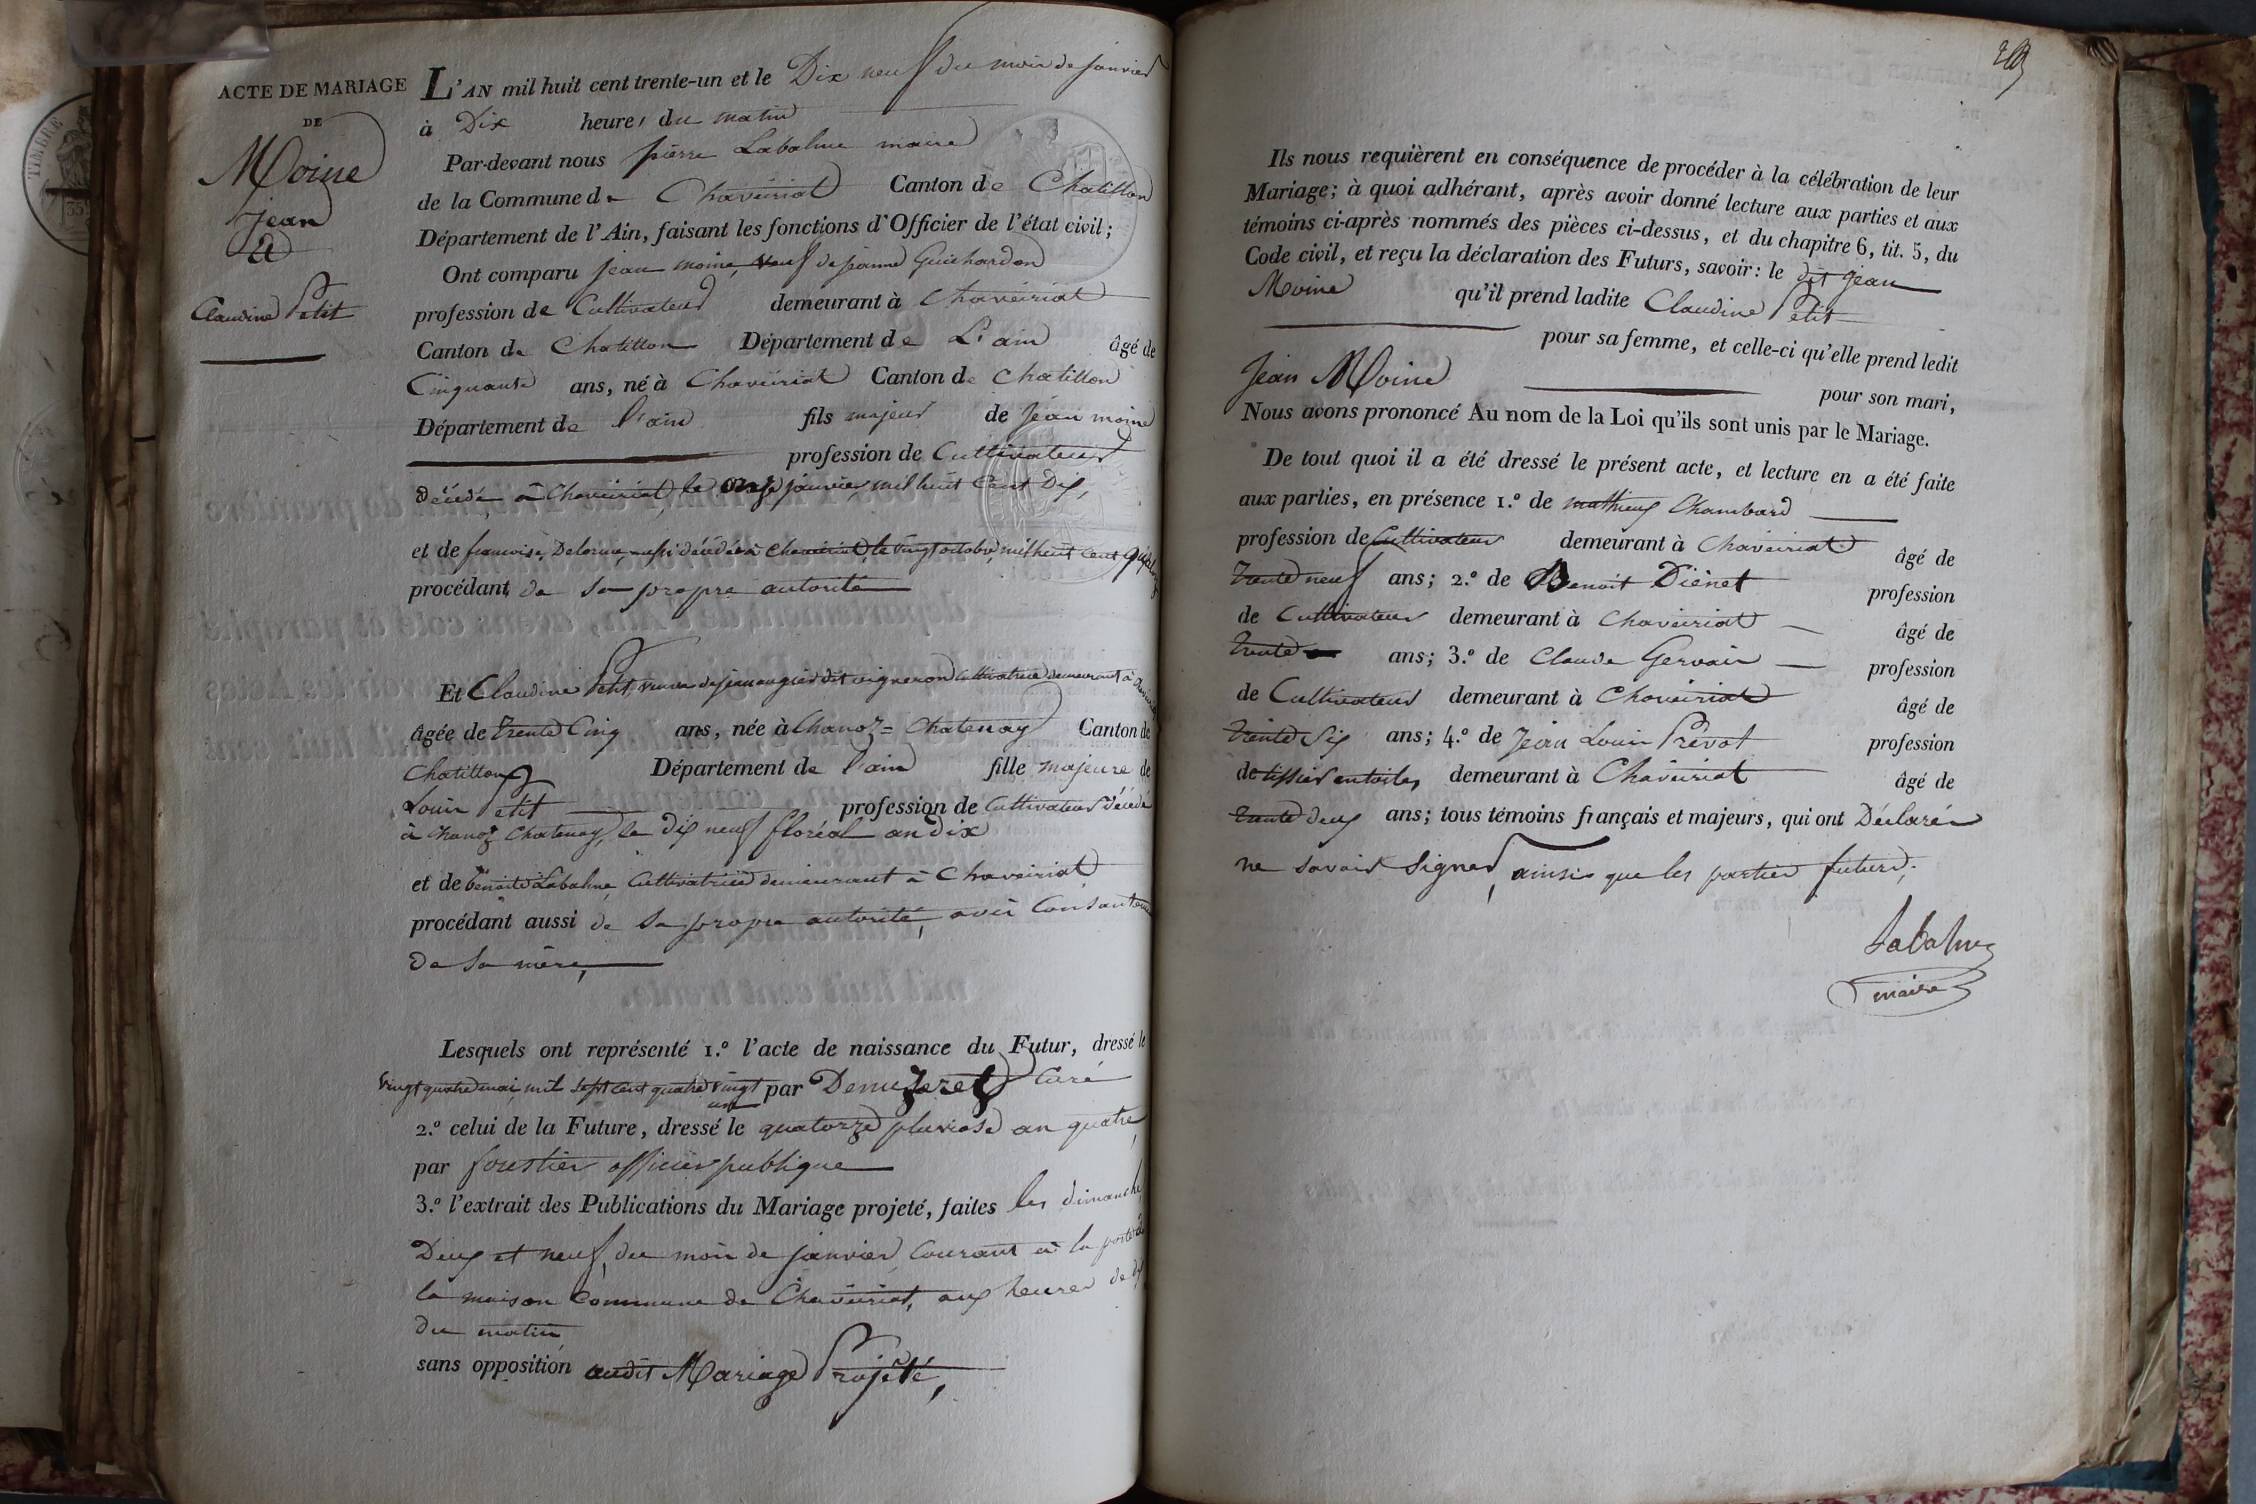 ACTE DE MARIAGE
DE
Moine
jean
&
Claudine Petit
TIMBRE
L'AN mil huit cent trente-un et le Dix neuf du mois de janvier
à Dix heures du matin
Par-devant nous pierre Labalme maire
de la Commune de Chaveiriat Canton de Chatillon
Département de l'Ain, faisant les fonctions d'Officier de l'état civil;
Ont comparu jean moine, veuf de jeanne Guichardon
profession de Cultivateur demeurant à Chaveiriat
Canton de Chatillon Département de L'ain âgé de
Cinquante ans, né à Chaveiriat Canton de Chatillon
Département de l'ain fils majeur de jean moine
profession de Cultivateur
décédé à Chaveiriat le onze janvier mil huit Cent Dix,
et de françoise Delorme, aussi décédée à Chaveiriat, le vingt octobre, mil huit cent quatorze
procédant de sa propre autorité
Et Claudine Petit, veuve de jean augier dit vigneron Cultivatrice demeurant à
âgée de trente Cinq ans, née à Chanoz=Chatenay Canton de
Chatillon Département de l'ain fille majeure de
Louis Petit profession de Cultivateur décédé
à Chanoz Chatenay, le dix neuf floréal an dix
et de Benoite Labalme Cultivatrice demeurant à Chaveiriat
procédant aussi de sa propre autorité, avec Consantement
de sa mère,
Lesquels ont représenté 1.º l'acte de naissance du Futur, dressé le
vingt quatre mai, mil sept cent quatre vingt un par Demizeret Curé
2.º celui de la Future, dressé le quatorze pluviose an quatre
par forestier officier publique
3.º l'extrait des Publications du Mariage projeté, faites les dimanche
Deux et neuf, du mois de janvier Courant à la porte de
la maison Commune de Chaveiriat, aux heures de dix
du matin
sans opposition audit Mariage Projeté,
Ils nous requièrent en conséquence de procéder à la célébration de leur
Mariage; à quoi adhérant, après avoir donné lecture aux parties et aux
témoins ci-après nommés des pièces ci-dessus, et du chapitre 6, tit. 5, du
Code civil, et reçu la déclaration des Futurs, savoir: le dit jean
Moine qu'il prend ladite Claudine Petit
pour sa femme, et celle-ci qu'elle prend ledit
Jean Moine pour son mari,
Nous avons prononcé Au nom de la Loi qu'ils sont unis par le Mariage.
De tout quoi il a été dressé le présent acte, et lecture en a été faite
aux parties, en présence 1.º de mathieu Chambard
profession de Cultivateur demeurant à Chaveiriat âgé de
trente neuf ans; 2.º de Benoit Diènet profession
de Cultivateur demeurant à Chaveiriat âgé de
trente ans; 3.º de Claude Gervais profession
de Cultivateur demeurant à Chaveiriat âgé de
trente six ans; 4.º de Jean Louis Prévot profession
de tissier en toiles demeurant à Chaveiriat âgé de
trente deux ans; tous témoins français et majeurs, qui ont Déclarés
ne savoir signer, ainsi que les parties futurs,
Labalme
maire